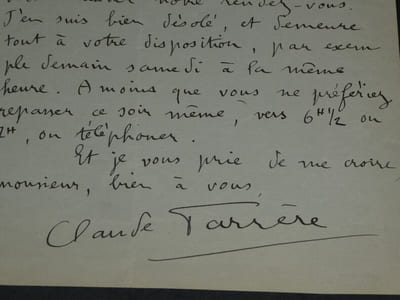 notre rendez-vous.
J'en suis bien désolé, et demeure
tout à votre disposition, par exem
ple demain samedi à la même
heure. A moins que vous ne préfériez
repasser ce soir même, vers 6 H 1/2 ou
7H, ou téléphoner.
Et je vous prie de me croire,
monsieur, bien à vous,
Claude Farrère